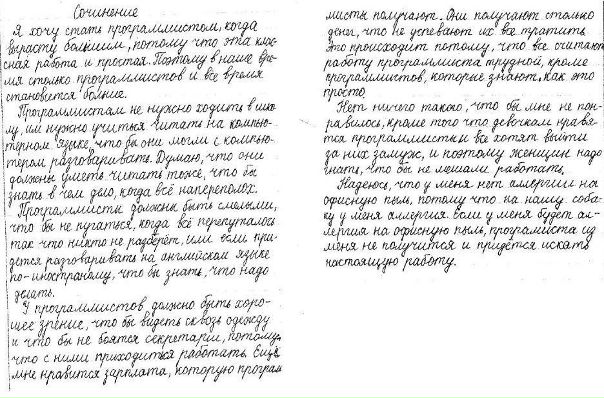 Сочинение
Я хочу стать программистом, когда
вырасту большим, потому что эта клас-
сная работа и простая. Поэтому в наше вре-
мя столько программистов и всё время
становется больше.
Программистам не нужно ходить в шко-
лу, им нужно учиться читать на компью-
терном языке, что бы они могли с компью-
тером разговаривать. Думаю, что они
должны уметь читать тоже, что бы
знать в чем дело, когда всё наперополох.
Программисты должны быть смелыми,
что бы не пугаться, когда всё перепуталось
так что никто не разберёт, или если при-
дется разговаривать на английском языке
по-иностраному, что бы знать, что надо
делать.
У программистов должно быть хоро-
шее зрение, что бы видеть сквозь одежду
и что бы не боятся секретарш, потому,
что с ними приходиться работать. Ещё
мне нравится зарплата, которую програм
мисты получают. Они получают столько
денег, что не успевают их все тратить
Это происходит потому, что все считают
работу программиста трудной, кроме
прграммистов, которые знают, как это
просто.
Нет ничего такого, что бы мне не пон-
равилось, кроме того что девчкам нравя-
тся программисты и все хотят выйти
за них замуж, и поэтому женщин надо
гнать, что бы не мешали работать.
Надеюсь, что у меня нет аллергии на
офисную пыль, потому что на нашу соба-
ку у меня аллергия. если у меня будет ал-
лергия на офисную пыль, програмиста из
меня не получится и придётся искать
настоящую работу.